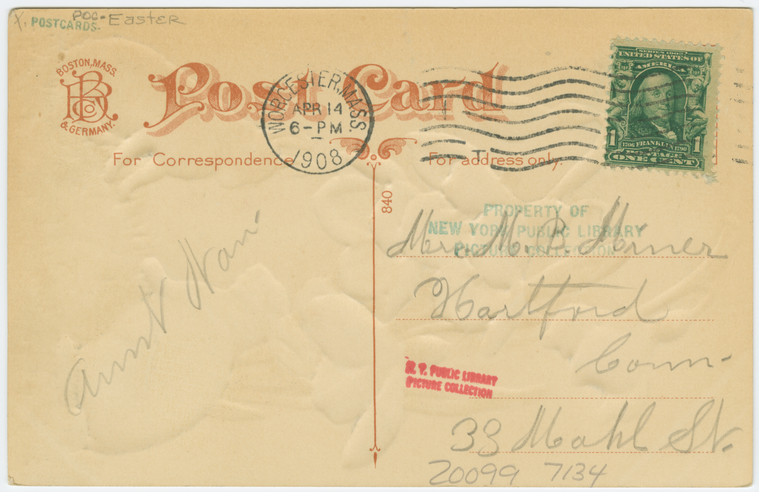 X. POSTCARDS- POC-Easter
BOSTON, MASS.
B B Co
& GERMANY.
Post Card
WORCESTER, MASS.
APR 14
6-PM
1908
SERIES 1902
UNITED STATES OF AMERICA
1 FRANKLIN 1
POSTAGE
ONE CENT
For Correspondence
For address only.
840
PROPERTY OF
NEW YORK PUBLIC LIBRARY
PICTURE COLLECTION
Aunt Nan-
Mrs. M. B. Miner
Hartford
Conn-
N. Y. PUBLIC LIBRARY
PICTURE COLLECTION
38 Mahl St.
20099 7134